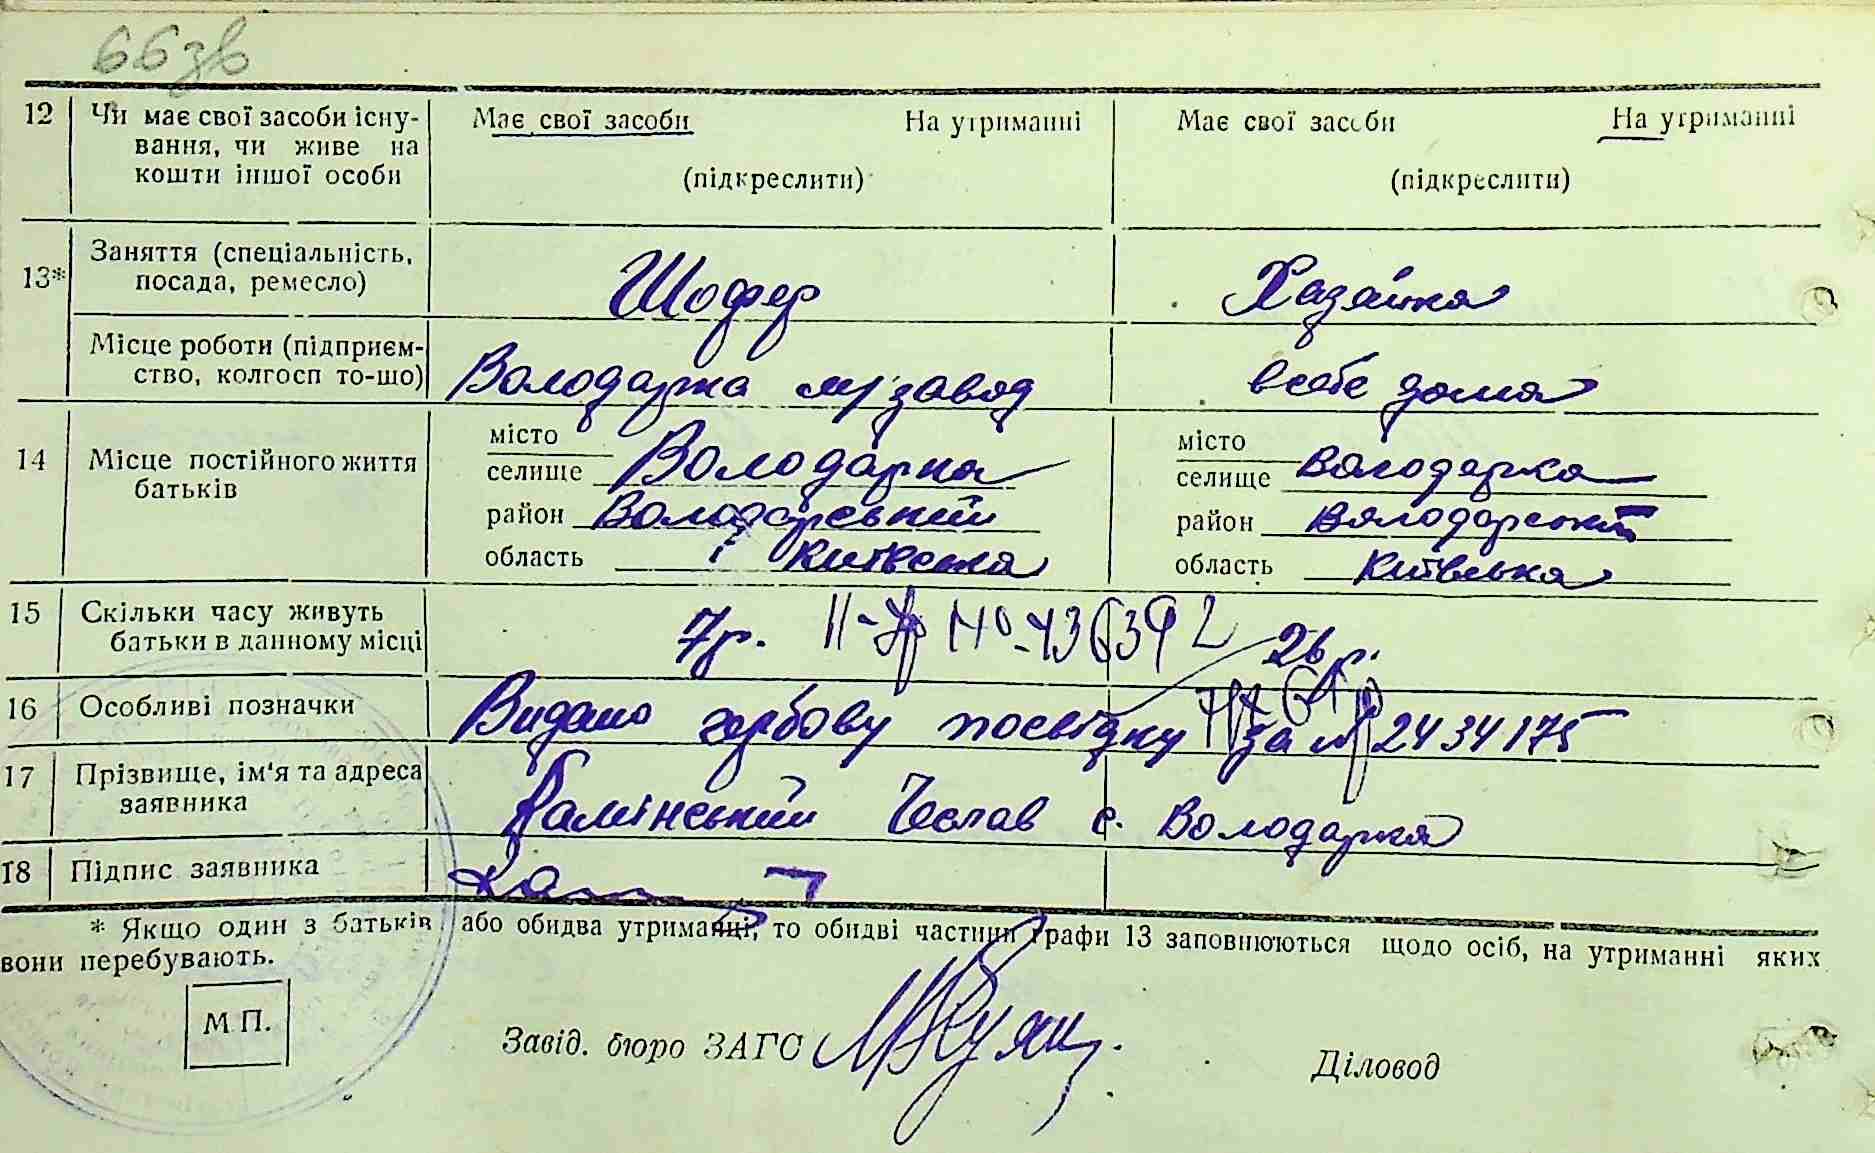 66зв
12 Чи має свої засоби існу- Має свої засоби На утриманні Має свої засоби На утриманні
вання, чи живе на
кошти іншої особи (підкреслити) (підкреслити)
13* Заняття (спеціальність,
посада, ремесло) Шофер Хазяйка
Місце роботи (підприєм-
ство, колгосп то-що) Володарка завод в себе дома
14 Місце постійного життя місто місто
батьків селище Володарка селище Володарка
район Володарський район Володарський
область Київська область Київська
15 Скільки часу живуть
батьки в данному місці 7 р. 26 р.
16 Особливі позначки Видано гербову посвідку за № 2434175
17 Прізвище, ім'я та адреса
заявника Камінський Чеслав с. Володарка
18 Підпис заявника
* Якщо один з батьків або обидва утриманці, то обидві частини графи 13 заповнюються щодо осіб, на утриманні яких
вони перебувають.
М П.
Завід. бюро ЗАГС Діловод